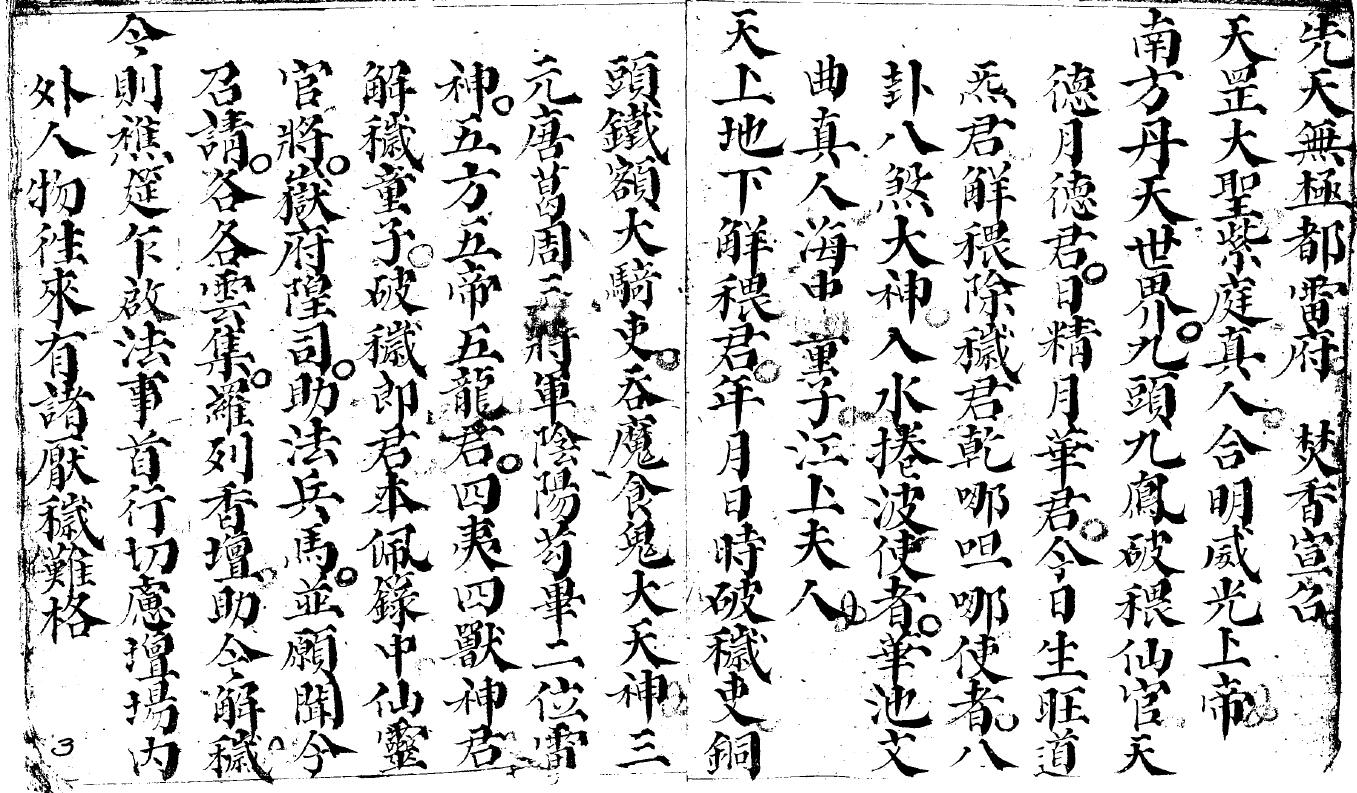 先天無極都雷府　焚香宣召
天罡大聖紫庭真人合明威光上帝
南方丹天世界九頭九鳳破穢仙官天
德月德君日精月華君今日生旺道
炁君解穢除穢君乾哪呾哪使者八
卦八煞大神入水捲波使者華池文
曲真人海中童子江上夫人
天上地下解穢君年月日時破穢吏銅
頭鐵額大騎吏吞魔食鬼大天神三
元唐葛周三將軍陰陽苟畢二位雷
神五方五帝五龍君四夷四獸神君
解穢童子破穢郎君本佩籙中仙靈
官將嶽府隍司助法兵馬並願聞今
召請各各雲集羅列香壇助今解穢
今則醮筵乍啟法事首行切慮壇場內
外人物往來有諸厭穢難格
3